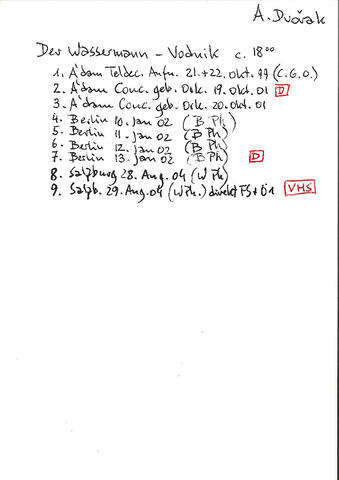 A. Dvořak
Der Wassermann – Vodnik c. 18⁰⁰
1. A'dam Teldec. Aufn. 21.+22. Okt. 99 (C.G.O.)
2. A'dam Conc. geb. Ork. 19. Okt. 01 D
3. A'dam Conc. geb. Ork. 20. Okt. 01
4. Berlin 10. Jan 02 (B Ph)
5. Berlin 11. Jan 02 (B Ph)
6. Berlin 12. Jan 02 (B Ph)
7. Berlin 13. Jan 02 (B Ph) D
8. Salzburg 28. Aug. 04 (W Ph)
9. Salzb. 29. Aug. 04 (W Ph.) direkt FS + Ö1 VHS